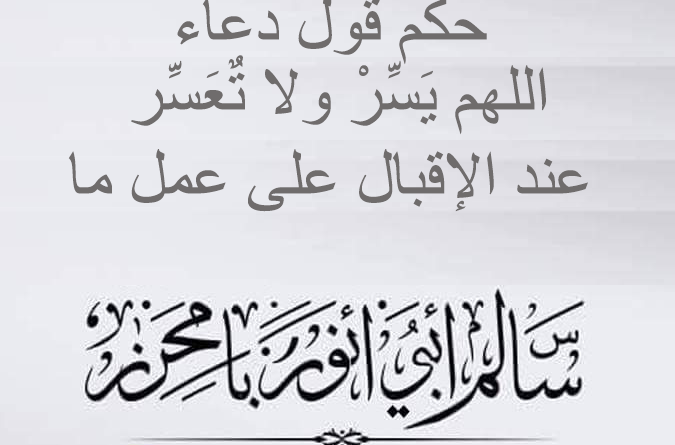 حكم قول دعاء
اللهم يَسِّرْ ولا تٌعَسِّر
عند الإقبال على عمل ما
سالم أبي أنور بامحرز